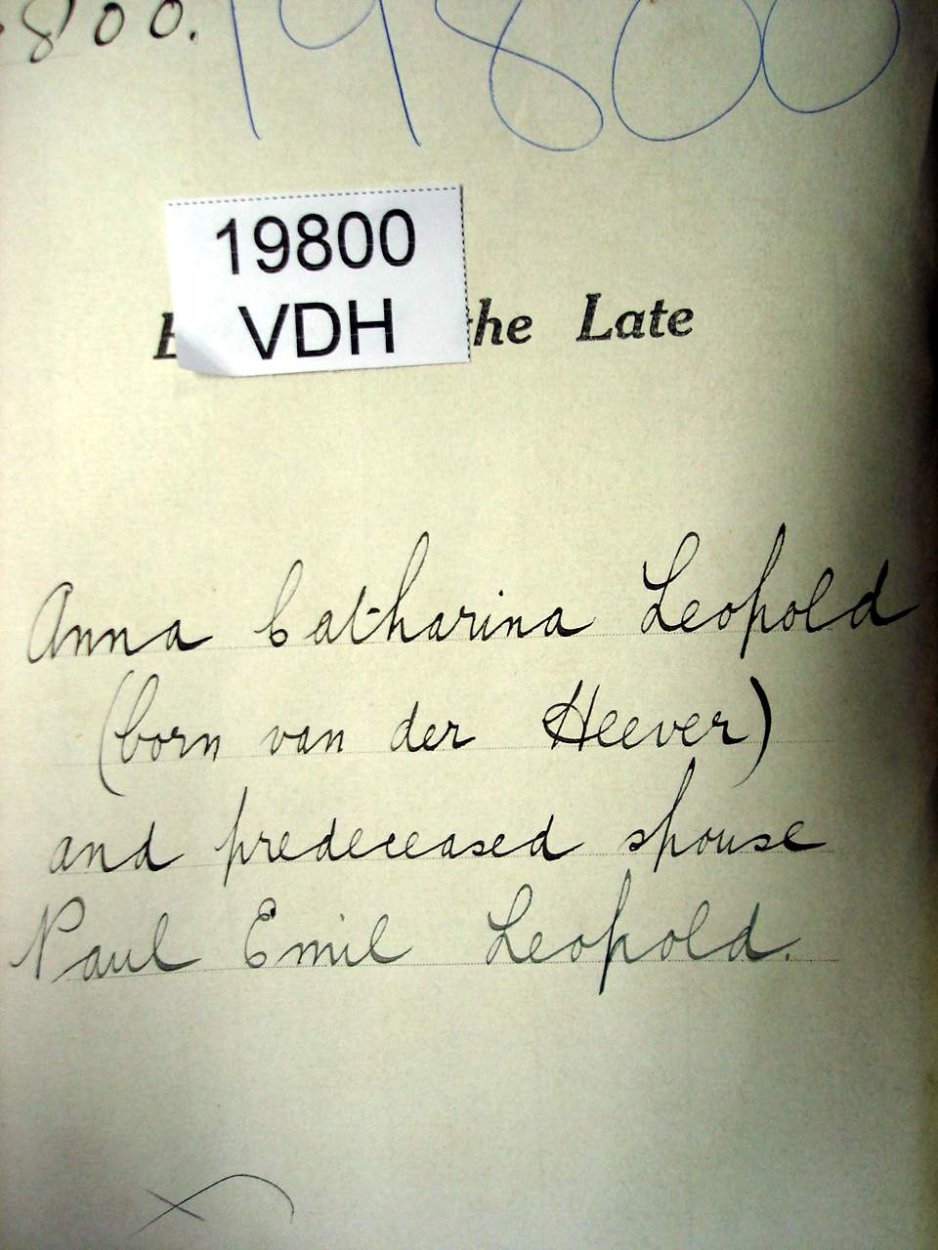 800. 19800
19800
VDH
the Late
Anna Catharina Leopold
(born van der Heever)
and predeceased spouse
Paul Emil Leopold.